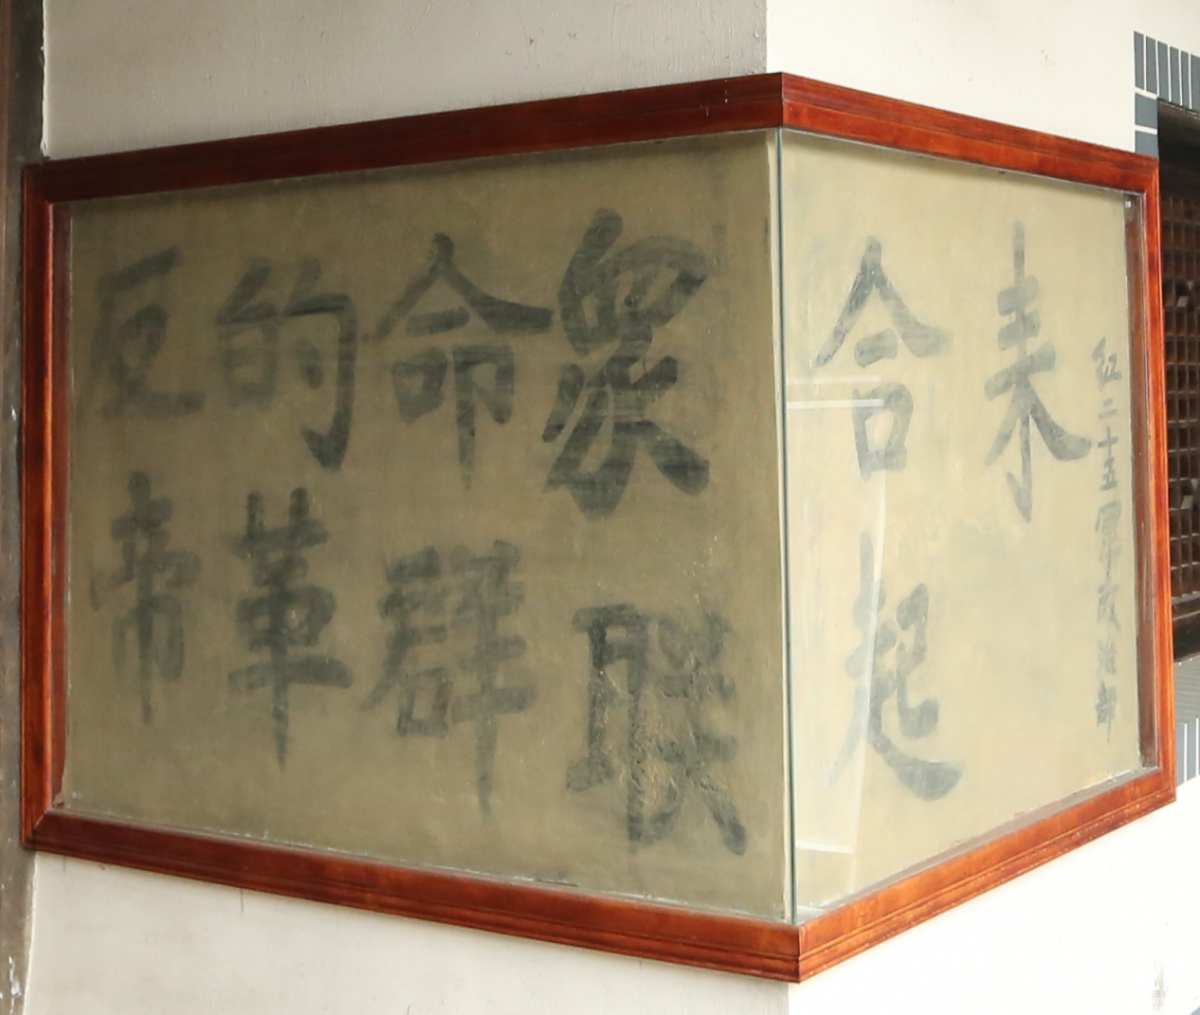 反帝
的革
命群
衆联
合起
来
红二十五軍政治部